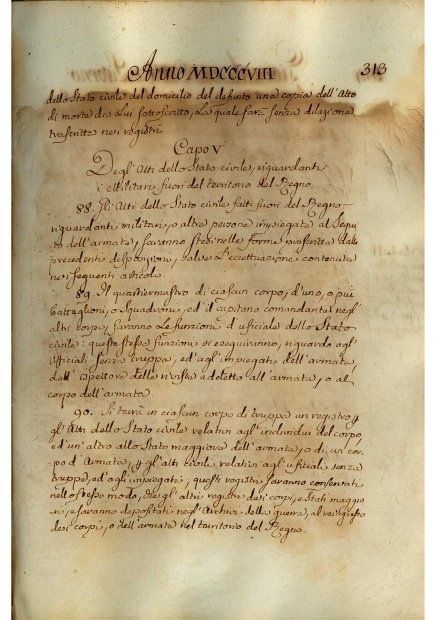 Anno MDCCCVIII 313
dello Stato civile del domicilio del defunto una copia dell'Atto
di morte da Lui sottoscritto, La quale sarà senza dilazione
trascritta nei registri.
Capo V
Degl'Atti dello Stato civile, riguardanti
i Militari fuori del territorio del Regno.
88. Gl'Atti dello Stato civile fatti fuori del Regno
riguardanti militari, o altre persone impiegate al sequi
to dell'armata, saranno stesi nelle forme prescritte dalle
precedenti disposizioni, salve l'eccettuazioni contenute
nei seguenti articoli.
89. Il quartiermastro di ciascun corpo, d'uno, o più
battaglioni, o Squadroni, ed il capitano comandante negl'
altri corpi, faranno le funzioni d'ufficiale dello Stato
civile: queste stesse funzioni si eseguiranno, riguardo agl'
Ufficiali senza truppa, ed agl'impiegati dell'armata,
dall'ispettore delle riviste addetto all'armata, o al
corpo dell'armata.
90. Si terrà in ciascun corpo di truppa un registro
gl'Atti dello Stato civile relativi agl'individui del corpo
ed un'altro allo Stato maggiore dell'armata, o di un cor
po d'Armata, gl'atti civili relativi agl'ufficiali senza
truppe, ed agli impiegati; questi registri saranno conservati
nello stesso modo, che gl'altri registri dei corpi, e Stati maggio
ri, e saranno depositati negl'Archivi della guerra, al ritorno
dei corpi, o dell'armata nel territorio del Regno.